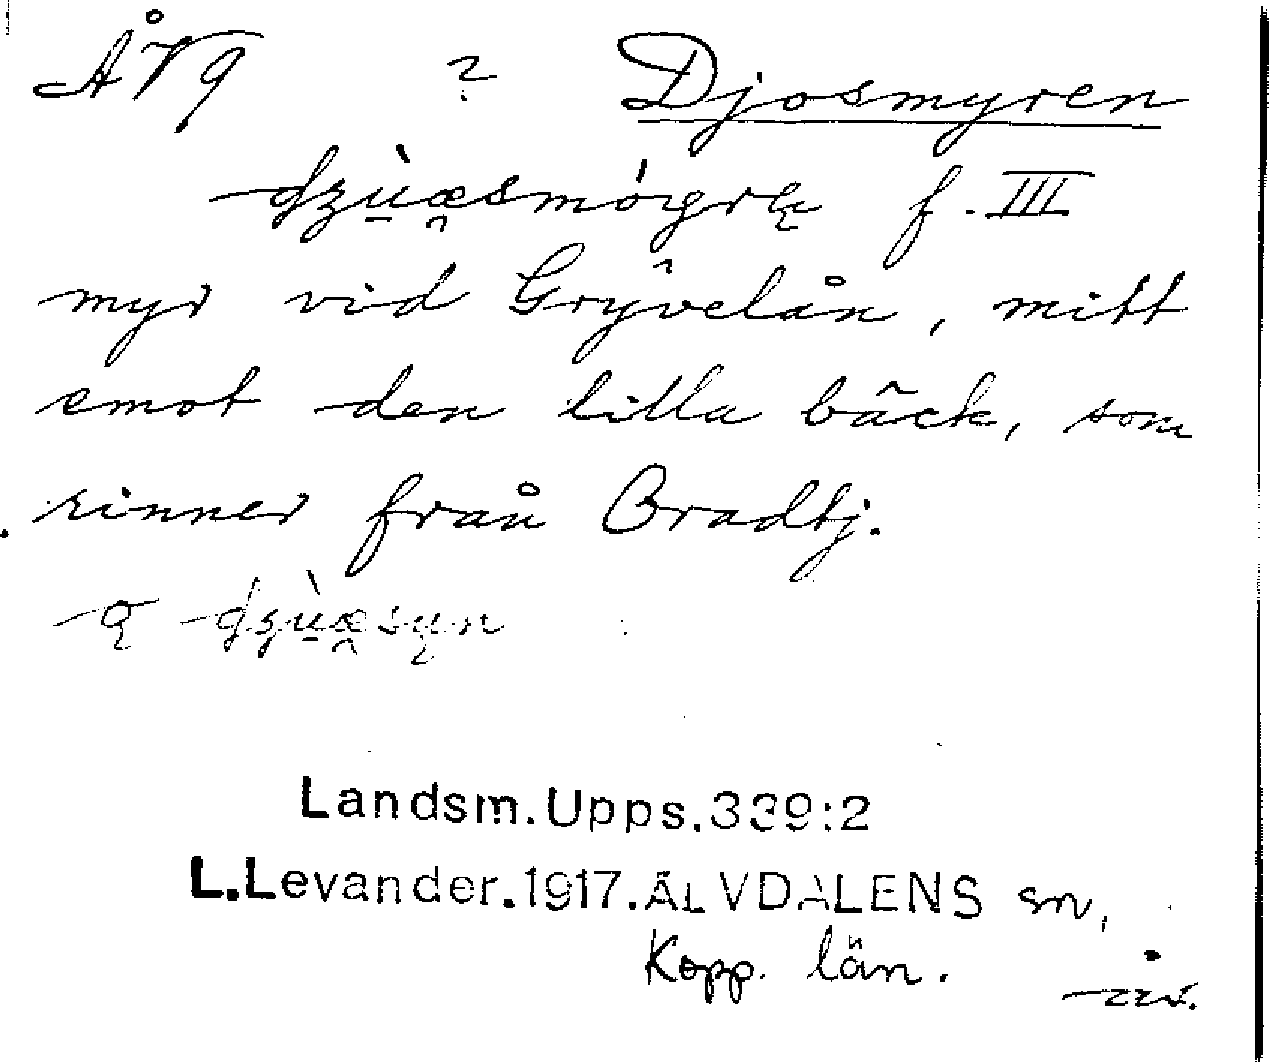 ÅVq ? Djosmyren
dzùæsmóyrę f. III
myr vid Grÿvelån, mitt
emot den lilla bäck, som
rinner från Bradtj.
dzùæsyn
Landsm.Upps.339:2
L.Levander.1917.ÄLVDALENS sn,
Kopp. län.